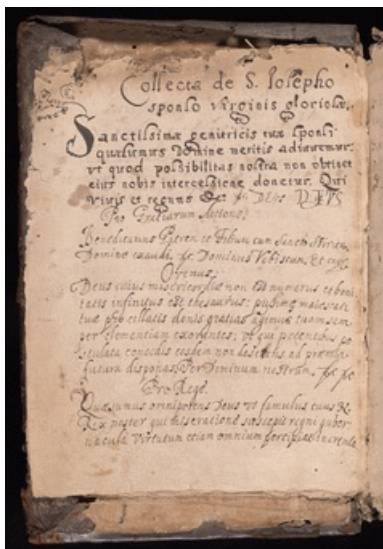 Collecta de S. Iosepho
sponso virginis gloriosæ.
Sanctissimæ genitricis tuæ sponsi
quæsumus Domine meritis adiuuemur:
vt quod possibilitas nostra non obtinet
eius nobis intercessione donetur. Qui
viuis et regnas &c.
Pro Gratiarum Actione.
Benedicamus Patrem et Filium cum Sancto Spiritu,
Domine exaudi, &c. Dominus Vobiscum, Et cum
Oremus,
Deus cuius misericordiæ non est numerus et boni
tatis infinitus est thesaurus: pijssimæ maiestati
tuæ pro collatis donis gratias agimus tuam sem
per clementiam exorantes; vt qui petentibus po
stulata concedis eosdem non deserens ad præmia
futura disponas. Per Dominum nostrum,
Pro Rege.
Quæsumus omnipotens Deus vt famulus tuus
Rex noster qui miseratione suscepit regni guber
nacula virtutum etiam omnium percipiat incremē